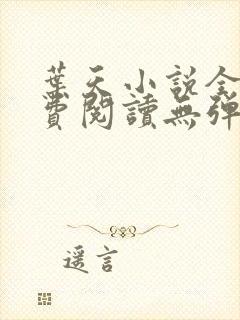 葉天小說全
費閱讀無彈
遥言